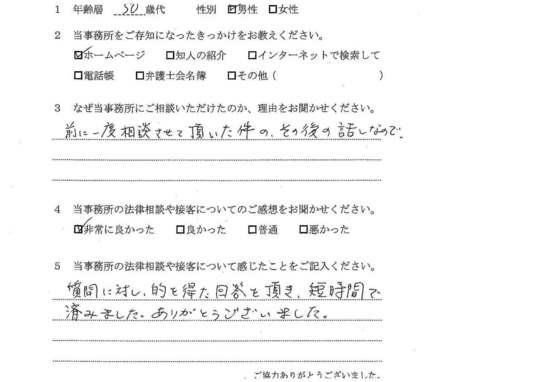 1 年齢層 50 歳代 性別 ☑男性 □女性
2 当事務所をご存知になったきっかけをお教えください。
☑ホームページ □知人の紹介 □インターネットで検索して
□電話帳 □弁護士会名簿 □その他 ( )
3 なぜ当事務所にご相談いただけたのか、理由をお聞かせください。
前に一度相談させて頂いた件の、その後の話しなので。
4 当事務所の法律相談や接客についてのご感想をお聞かせください。
☑非常に良かった □良かった □普通 □悪かった
5 当事務所の法律相談や接客について感じたことをご記入ください。
質問に対し、的を得た回答を頂き、短時間で
済みました。ありがとうございました。
ご協力ありがとうございました。